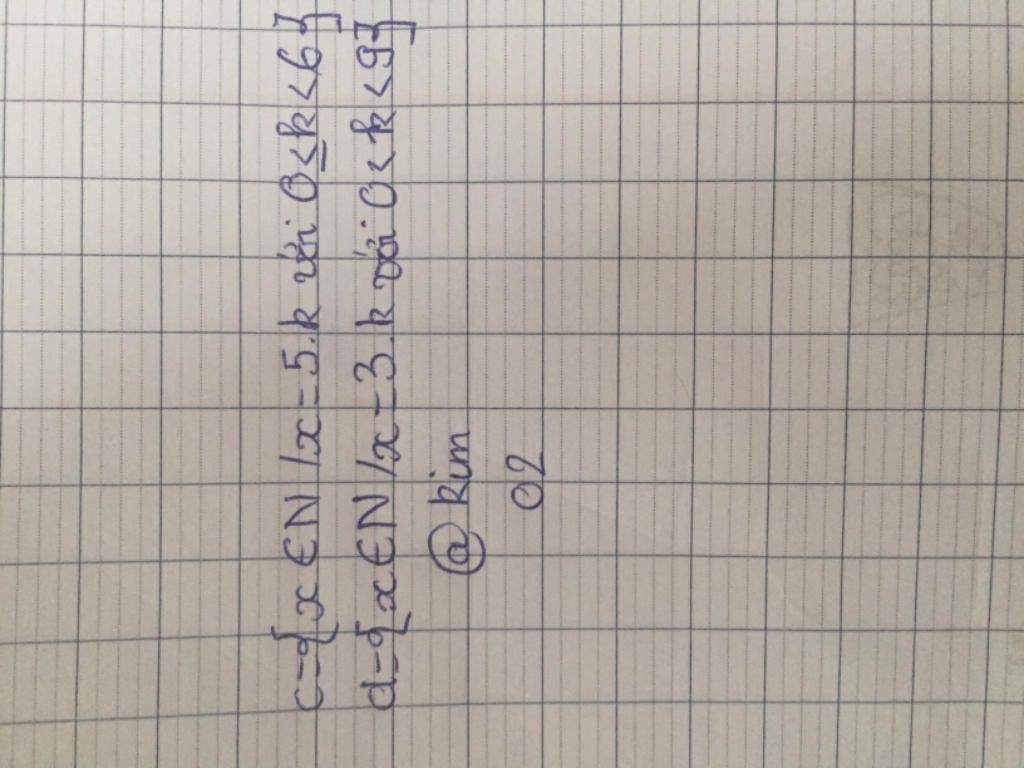 c={x ∈ N /x=5.k với 0≤k<6}
d={x ∈ N /x=3.k với 0<k<9}
@kim
02